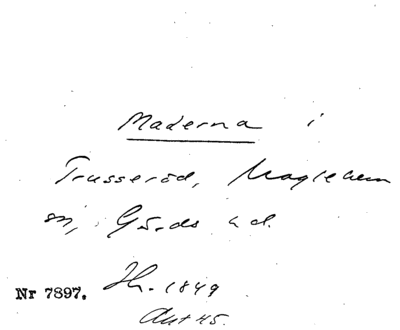 Maderna i
Trusseröd, Maglehem
sn, Gärds hd.
Nr 7897. Hh. 1849
Ant 45.